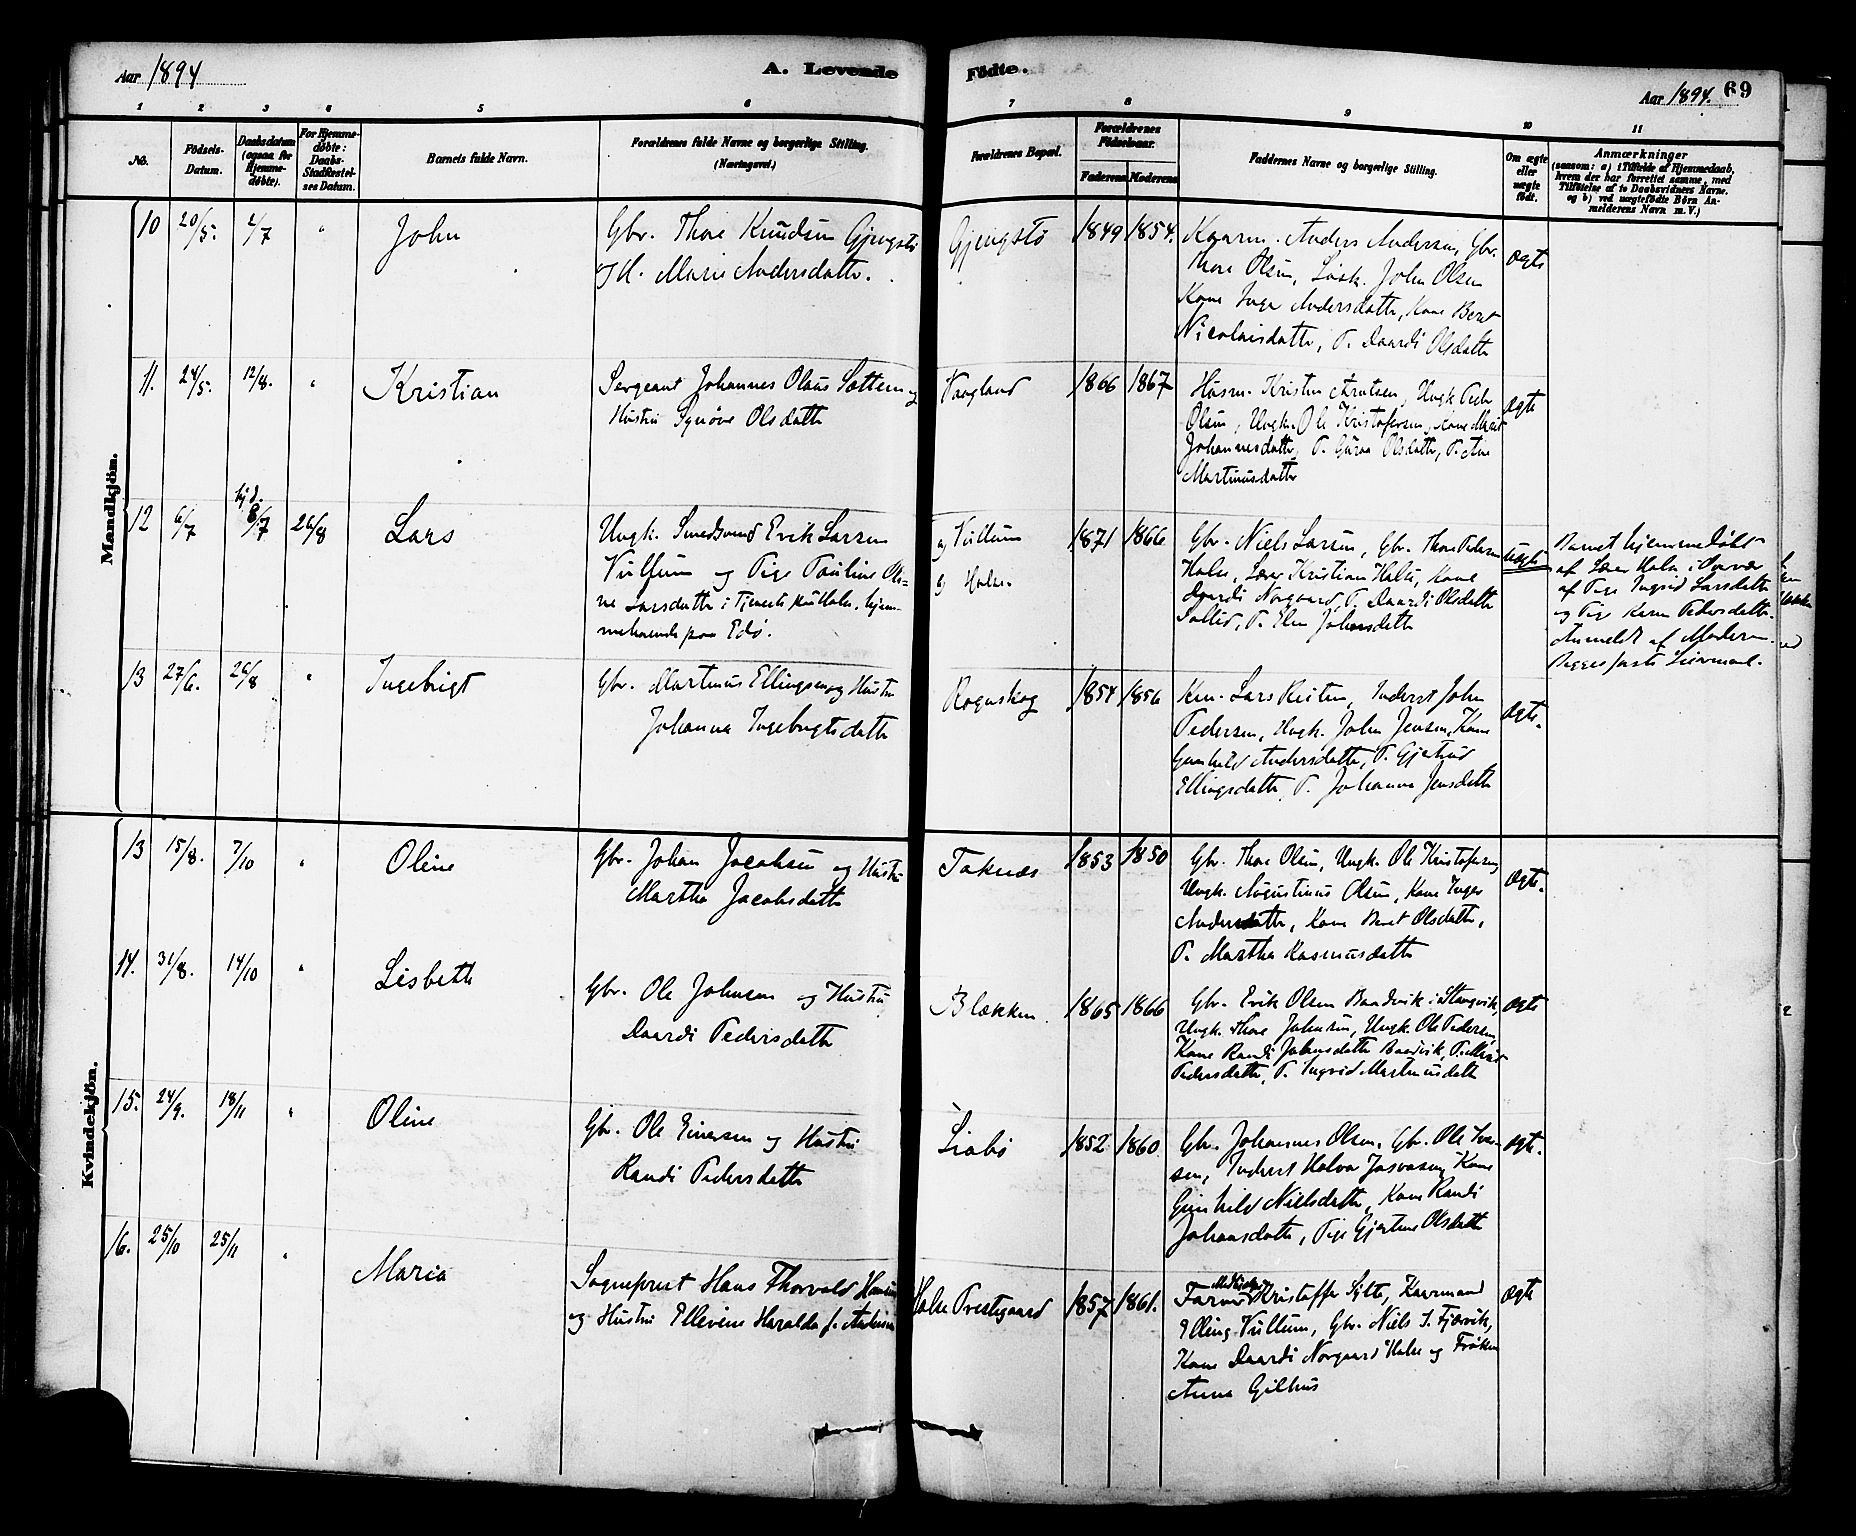 Aar 1894
A. Levende
Födte.
Aar 1894.
69
1 2 3 4 5 6 7 8 9 10 11
No.
Födsels-
Datum.
Daabsdatum
(ogsaa for
Hjemme-
döbte).
For Hjemme-
döbte:
Daabs-
Stadfæstel-
ses Datum.
Barnets fulde Navn.
Forældrenes fulde Navne og borgerlige Stilling.
(Næringsvei.)
Forældrenes Bopæl.
Forældrenes
Födselsaar.
Faderens
Moderens
Faddernes Navne og borgerlige Stilling.
Om ægte
eller
uægte
födt.
Anmærkninger
(saasom: a) i Tilfælde af Hjemmedaab,
hvem der har forrettet samme, med
Tilföielse af to Daabsvidners Navne.
og b) ved uægtefödte Börn An-
melderens Navn m. V.)
Mandkjön.
10 20/5. 2/7 " John
Gbr. Thore Knudsen Gjengstö
og H. Marie Andersdatter.
Gjengstö 1849 1854.
Kaarm. Anders Andersen, Gbr.
Thore Olsen, Lösk. John Olsen
Kone Inger Andersdatter, Kone Beret
Nicolaisdatter, P. Daardi Olsdatter
ægte
11. 24/5. 12/8. " Kristian
Sergeant Johannes Olaus Sættem og
Hustru Synöve Olsdatter
Vaagland 1866 1867
Husm. Kristen Knutsen, Ungk. Peder
Olsen, Ungk. Ole Kristofersen, Kone Marit
Johannesdatter, P. Guroa Olsdatter, P. Ane
Martinusdatter
ægte
12 6/7 hj.d. 8/7 26/8 Lars
Ungk. Smedsvend Erik Larsen
Vullum og Pige Pauline Oli-
ne Larsdatter i Tjeneste hos Halse, hjem-
mehörende paa Edö.
og Vullum
og Halse
1871 1866
Gbr. Niels Larsen, Gbr. Thore Pedersen
Halse, Lærer Kristian Halse, Kone
Daardi Norgaard, P. Daardi Olsdatter
P. Elen Johnsdatter
uægte
Barnet hjemmedöbt
af Lærer Halse i Nærvær
af Pige Ingrid Larsdatter
og Pige Karen Pedersdatter.
Anmeldt af Moderen.
Begges förste Leiermaal.
13 27/6. 26/8 " Ingebrigt
Gbr. Martinus Ellingsen og Hustru
Johanna Ingebrigtsdatter
Rognskog 1854 1856
Lars Reiten, Inderst John
Pedersen, Ungk. John Jensen, Kone
Gunhild Andersdatter, P. Gjertrud
Ellingsdatter, P. Johanna Jensdatter
ægte.
Kvindekjön.
13 15/8. 7/10 " Oline
Gbr. Johan Jacobsen og Hustru
Martha Jacobsdatter
Taknæs 1853 1850
Gbr. Thore Olsen, Ungk. Ole Kristofersen,
Ungk. Augustinus Olsen, Kone Inger
Andersdatter, Kone Beret Olsdatter,
P. Martha Rasmusdatter
ægte.
14. 31/8. 14/10 " Lisbeth
Gbr. Ole Johnsen og Hustru
Daardi Pedersdatter
Blækken 1865 1866
Gbr. Erik Olsen Baadvik i Stangvik,
Ungk. Thore Johnsen, Ungk. Ole Pedersen,
Kone Randi Johnsdatter Baadvik, P. Marit
Pedersdatter, P. Ingrid Martinusdatter
ægte
15. 24/9. 18/11 " Oline
Gbr. Ole Einersen og Hustru
Randi Pedersdatter
Liabö 1852 1860
Gbr. Johannes Olsen, Gbr. Ole Iver-
sen, Inderst Halvor Kone
Gunhild Nielsdatter, Kone Randi
Johansdatter, Pige Gjertine Olsdatter
ægte.
16. 25/10 25/11 " Maria
Sogneprest Hans Thorvald Hansen
og Hustru Ellevine Haralda f. Andersen
Halse Prestegaard 1857 1861.
Kristoffer Kaarmand
Elling Vullum, Gbr. Niels J. Fjærvik,
Kone Daardi Norgaard Halse og Fröken
Anna Gilhus
ægte